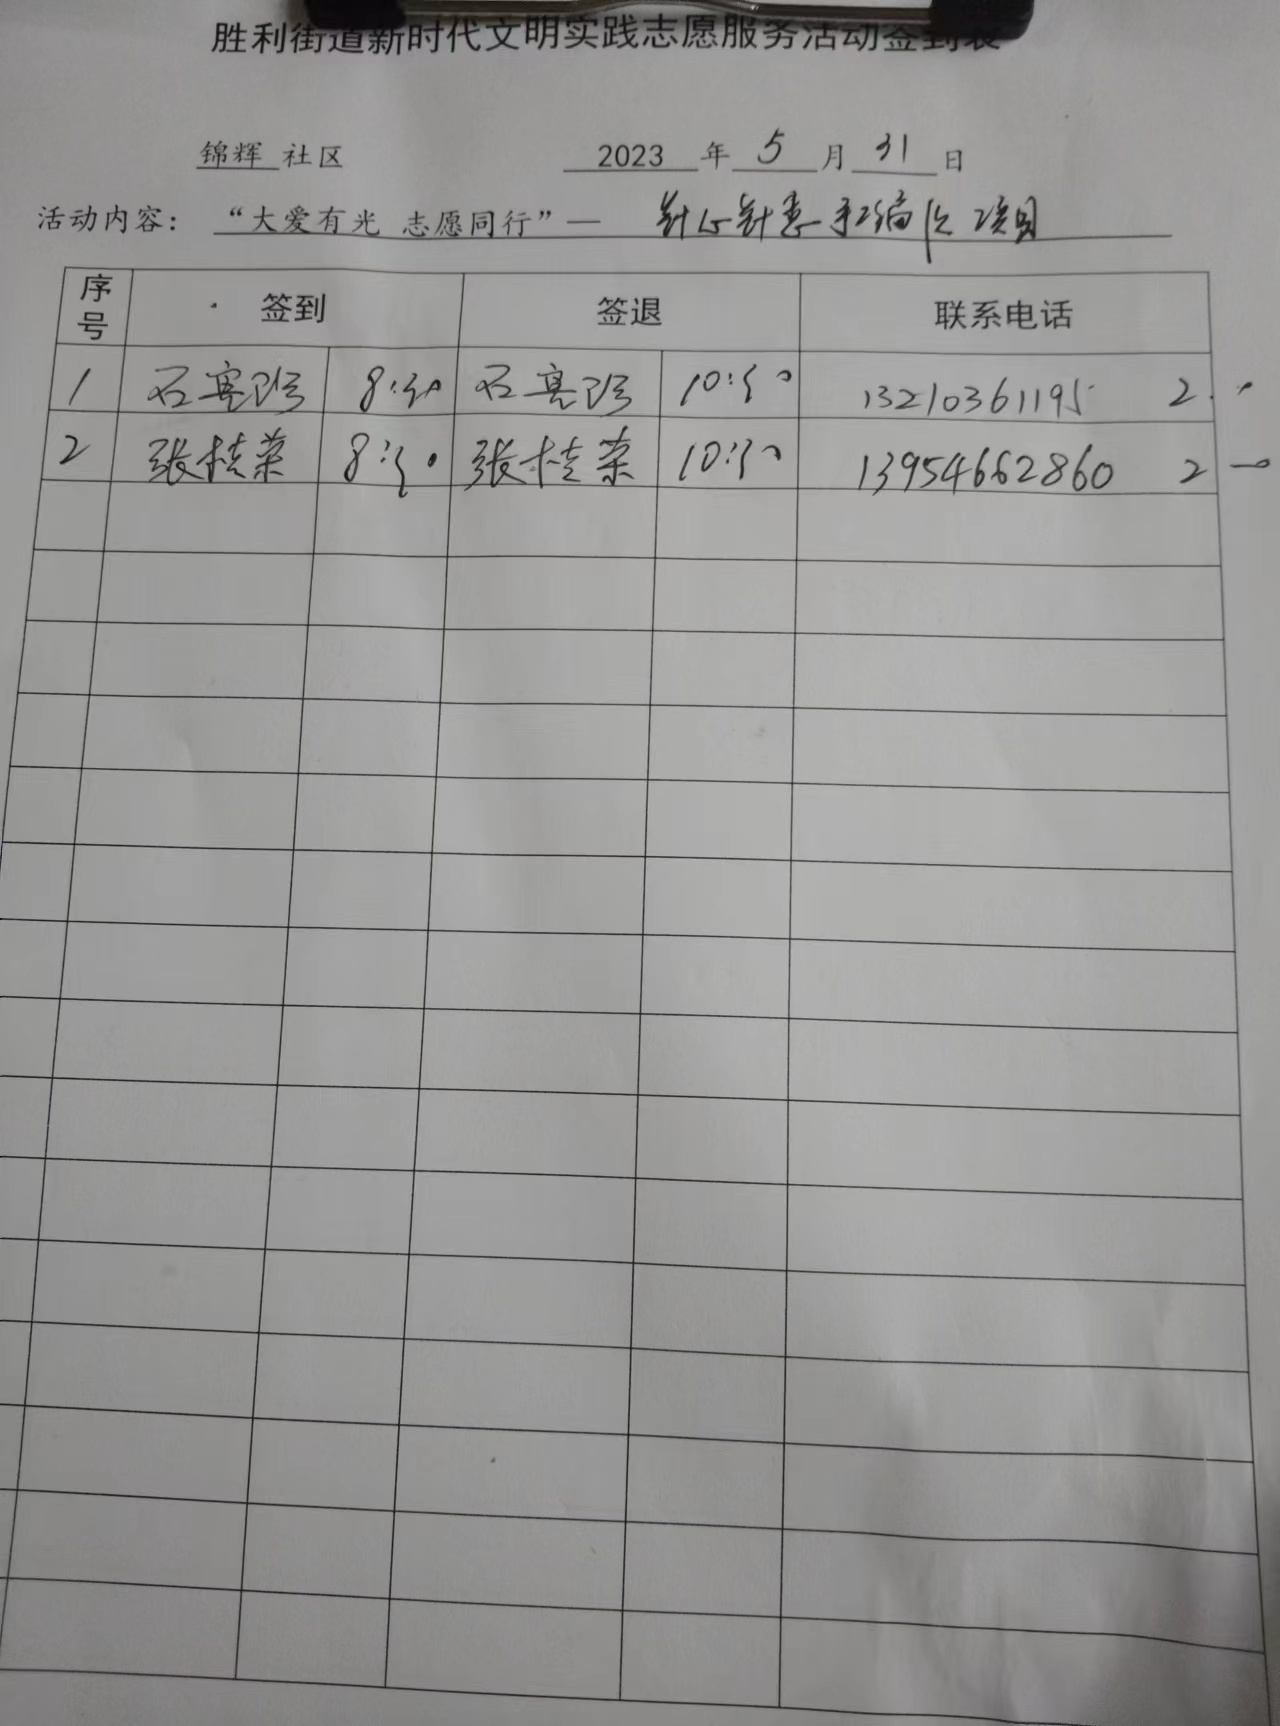 胜利街道新时代文明实践志愿服务活动签到表
锦辉 社区 2023 年 5 月 31 日
活动内容： “大爱有光 志愿同行”— 针心针意手工编织 项目
序号 签到 签退 联系电话
1 石 8:30 石 10:30 13210361195 2
2 张桂荣 8:30 张桂荣 10:30 13954662860 2